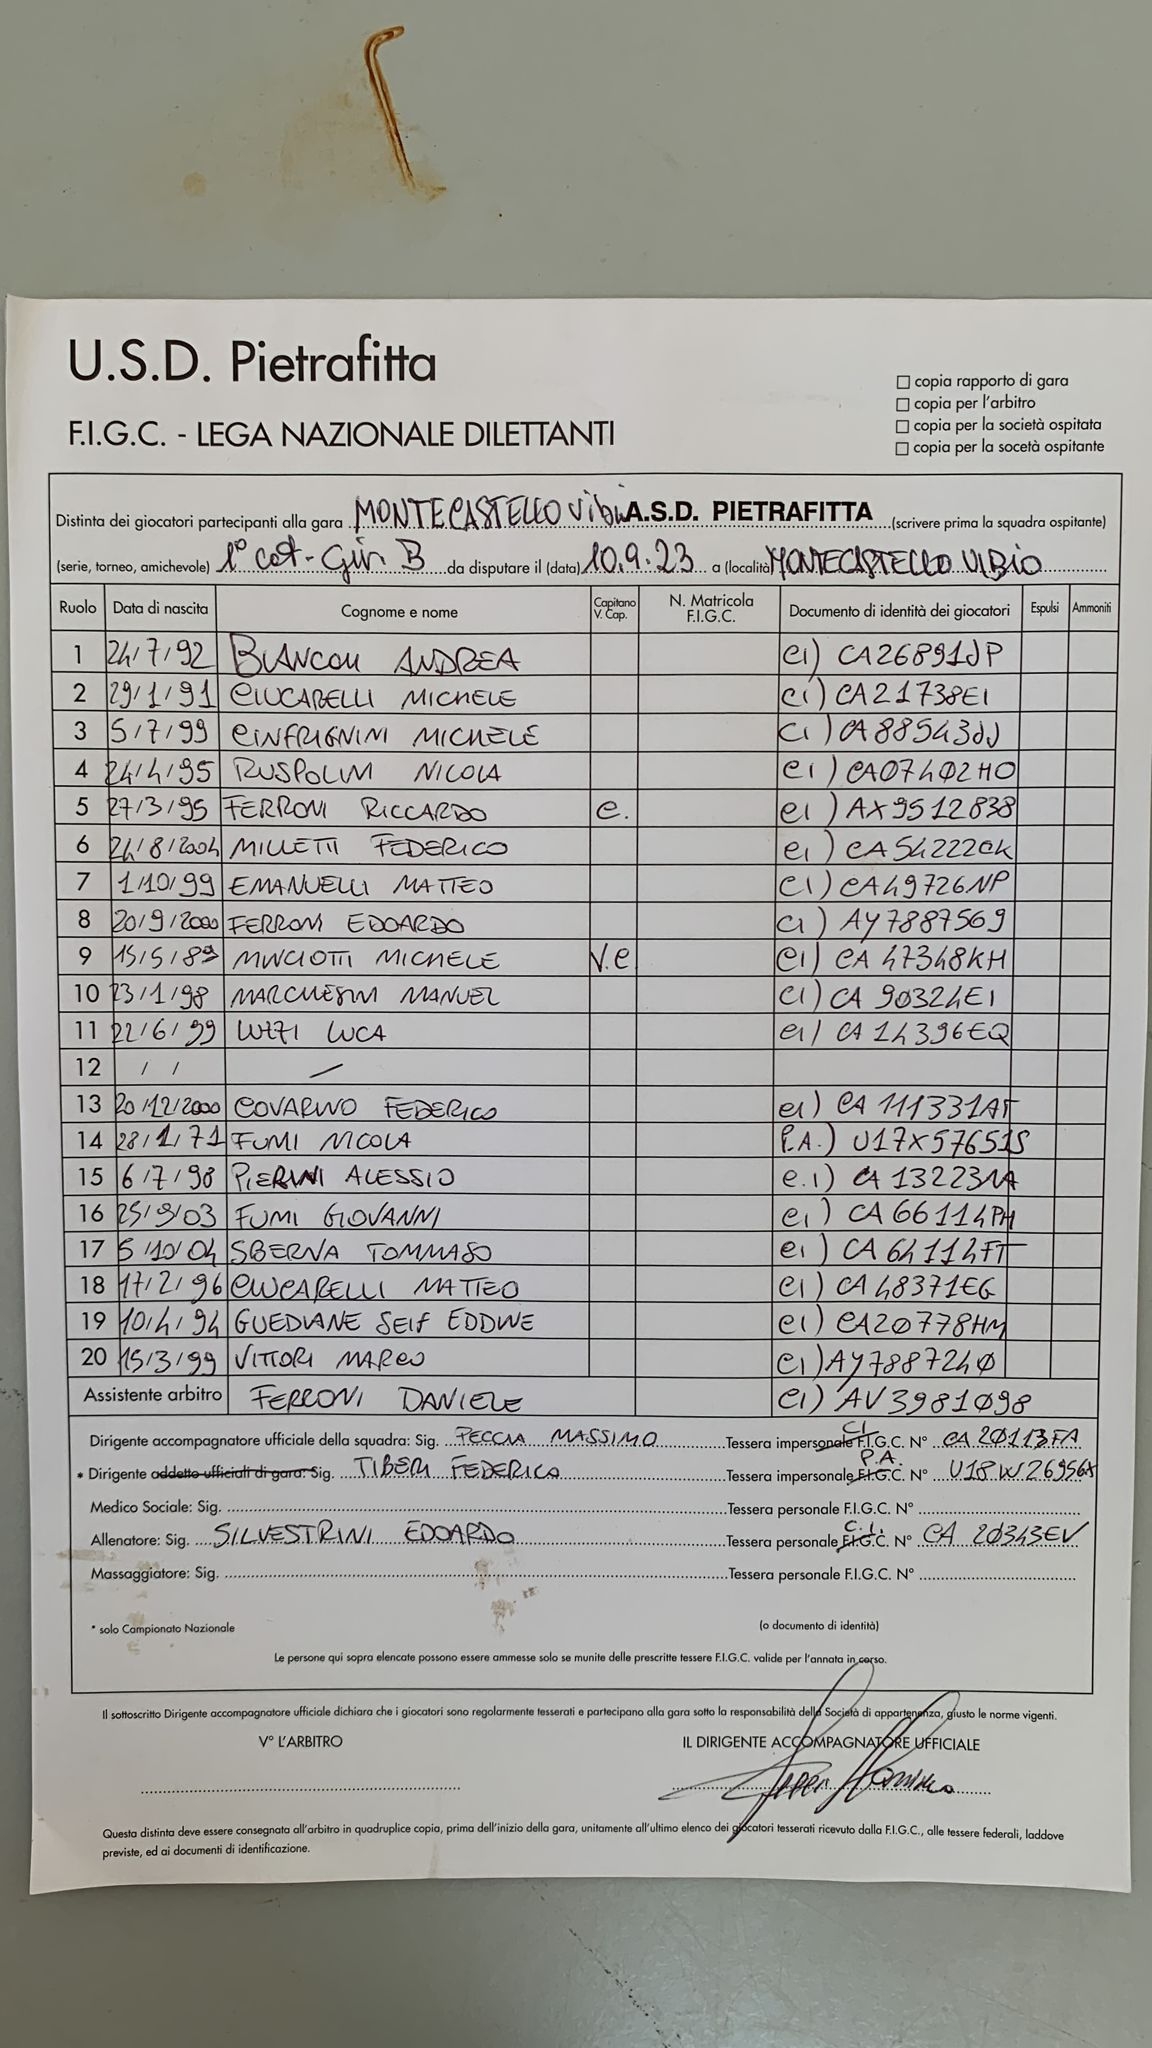 U.S.D. Pietrafitta
F.I.G.C. - LEGA NAZIONALE DILETTANTI
copia rapporto di gara
copia per l'arbitro
copia per la società ospitata
copia per la socetà ospitante
Distinta dei giocatori partecipanti alla gara MONTECASTELLO Vibio A.S.D. PIETRAFITTA (scrivere prima la squadra ospitante)
(serie, torneo, amichevole) 1° cat - Gir. B da disputare il (data) 10.9.23 a (località MONTECASTELLO VIBIO
Ruolo Data di nascita Cognome e nome Capitano V. Cap. N. Matricola F.I.G.C. Documento di identità dei giocatori Espulsi Ammoniti
1 24/7/92 BIANCONI ANDREA ci) CA26891JP
2 29/1/91 CIUCARELLI MICHELE ci) CA21738EI
3 5/7/99 CINFRIGNINI MICHELE ci) CA88543JJ
4 24/4/95 RUSPOLINI NICOLA ci) CA07402HO
5 27/3/95 FERRONI RICCARDO c. ci) AX9512838
6 24/8/2004 MILLETTI FEDERICO ci) CA54222CK
7 1/10/99 EMANUELLI MATTEO ci) CA49726NP
8 20/9/2000 FERRONI EDOARDO ci) AY7887569
9 15/5/89 MINCIOTTI MICHELE V.C ci) CA 47348KH
10 23/1/98 MARCHESINI MANUEL ci) CA 90324EI
11 22/6/99 LUCA ci) CA 14396EQ
12 / / /
13 20/12/2000 COVARINO FEDERICO ci) CA 111331AT
14 28/1/71 FUMI NICOLA P.A.) U17X57651S
15 6/7/98 PIERINI ALESSIO c.i) CA 13223NA
16 25/9/03 FUMI GIOVANNI ci) CA 66114PH
17 5/10/04 SBERNA TOMMASO ci) CA 64114FT
18 17/2/96 CIUCARELLI MATTEO ci) CA 48371EG
19 10/4/94 GUEDIANE SEIF EDDINE ci) CA20778HM
20 15/3/99 VITTORI MARCO ci) AY7887240
Assistente arbitro FERRONI DANIELE ci) AV3981098
Dirigente accompagnatore ufficiale della squadra: Sig. PECCIA MASSIMO Tessera impersonale F.I.G.C. C.I. N° CA 20113FA
* Dirigente addetto ufficiali di gara: Sig. TIBERI FEDERICO Tessera impersonale F.I.G.C. P.A. N° U18W26956X
Medico Sociale: Sig. Tessera personale F.I.G.C. N°
Allenatore: Sig. SILVESTRINI EDOARDO Tessera personale F.I.G.C. C.I. N° CA 20343EV
Massaggiatore: Sig. Tessera personale F.I.G.C. N°
* solo Campionato Nazionale (o documento di identità)
Le persone qui sopra elencate possono essere ammesse solo se munite delle prescritte tessere F.I.G.C. valide per l'annata in corso.
Il sottoscritto Dirigente accompagnatore ufficiale dichiara che i giocatori sono regolarmente tesserati e partecipano alla gara sotto la responsabilità della Società di appartenenza, giusto le norme vigenti.
V° L'ARBITRO IL DIRIGENTE ACCOMPAGNATORE UFFICIALE
Questa distinta deve essere consegnata all'arbitro in quadruplice copia, prima dell'inizio della gara, unitamente all'ultimo elenco dei giocatori tesserati ricevuto dalla F.I.G.C., alle tessere federali, laddove
previste, ed ai documenti di identificazione.